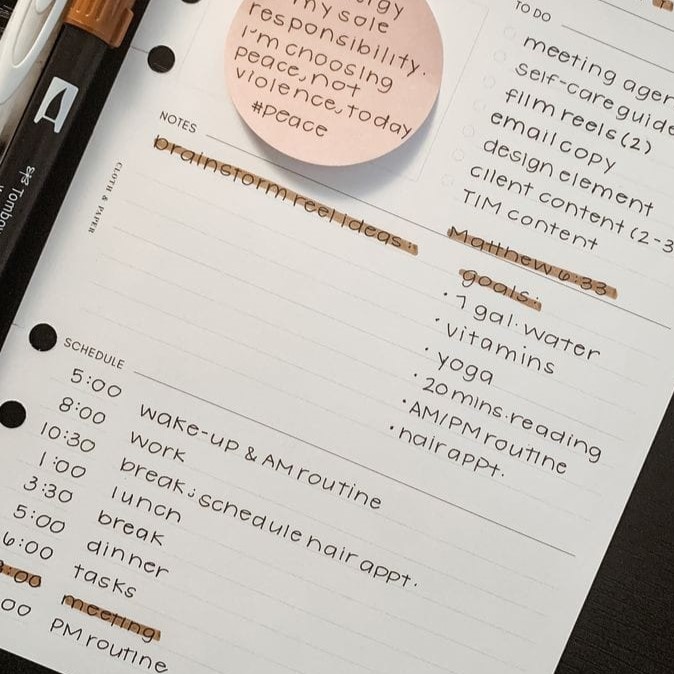 my sole
responsibility.
I'm choosing
peace, not
violence, today
#peace
TO DO
meeting
self-care guide
film reels (2)
email copy
design element
client content (2-3
TIM content
NOTES
brainstorm reel ideas:
CLOTH & PAPER
Matthew 6:33
goals:
• 1 gal. water
• vitamins
• yoga
• 20 mins. reading
• AM/PM routine
• hair appt.
SCHEDULE
5:00 wake-up & AM routine
8:00 work
10:30 break; schedule hair appt.
1:00 lunch
3:30 break
5:00 dinner
6:00 tasks
:00 meeting
:00 PM routine
Tombow